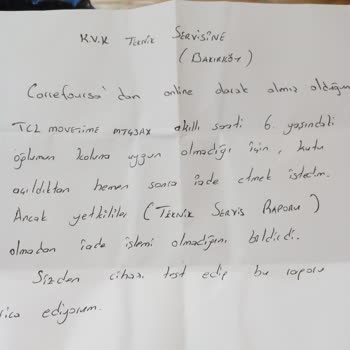 K.V.K TEKNİK SERVİSİNE
(BAKIRKÖY)
Carrefoursa'dan online olarak almış olduğum
TCL MOVETIME MT43AX akıllı saati 6 yaşındaki
oğlumun koluna uygun olmadığı için, kutu
açıldıktan hemen sonra iade etmek istedim.
Ancak yetkililer (TEKNİK SERVİS RAPORU)
olmadan iade işlemi olmadığını bildirdi.
Sizden cihazı test edip bu raporu
rica ediyorum.